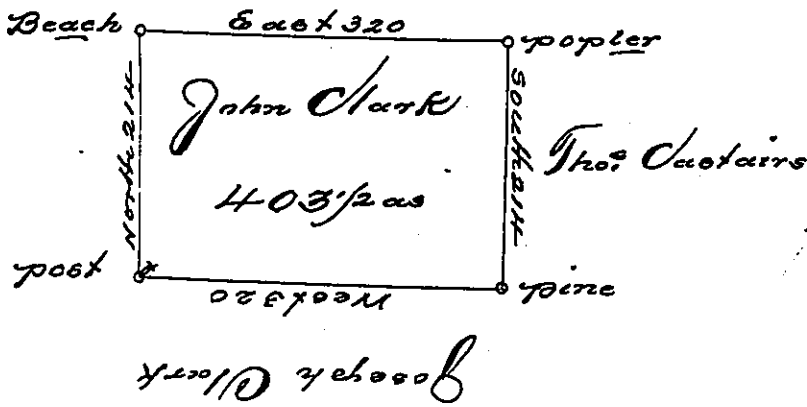 Beach
East 320
popler
North 214
John Clark
South 214
Tho.s Castairs
403 1/2 as
post
West 320
pine
Joseph Clark